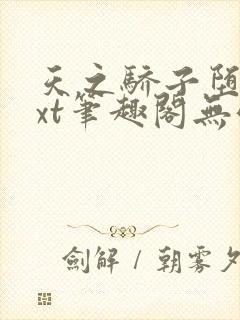 天之驕子墮
xt筆趣閣無
劍解 / 朝雾夕